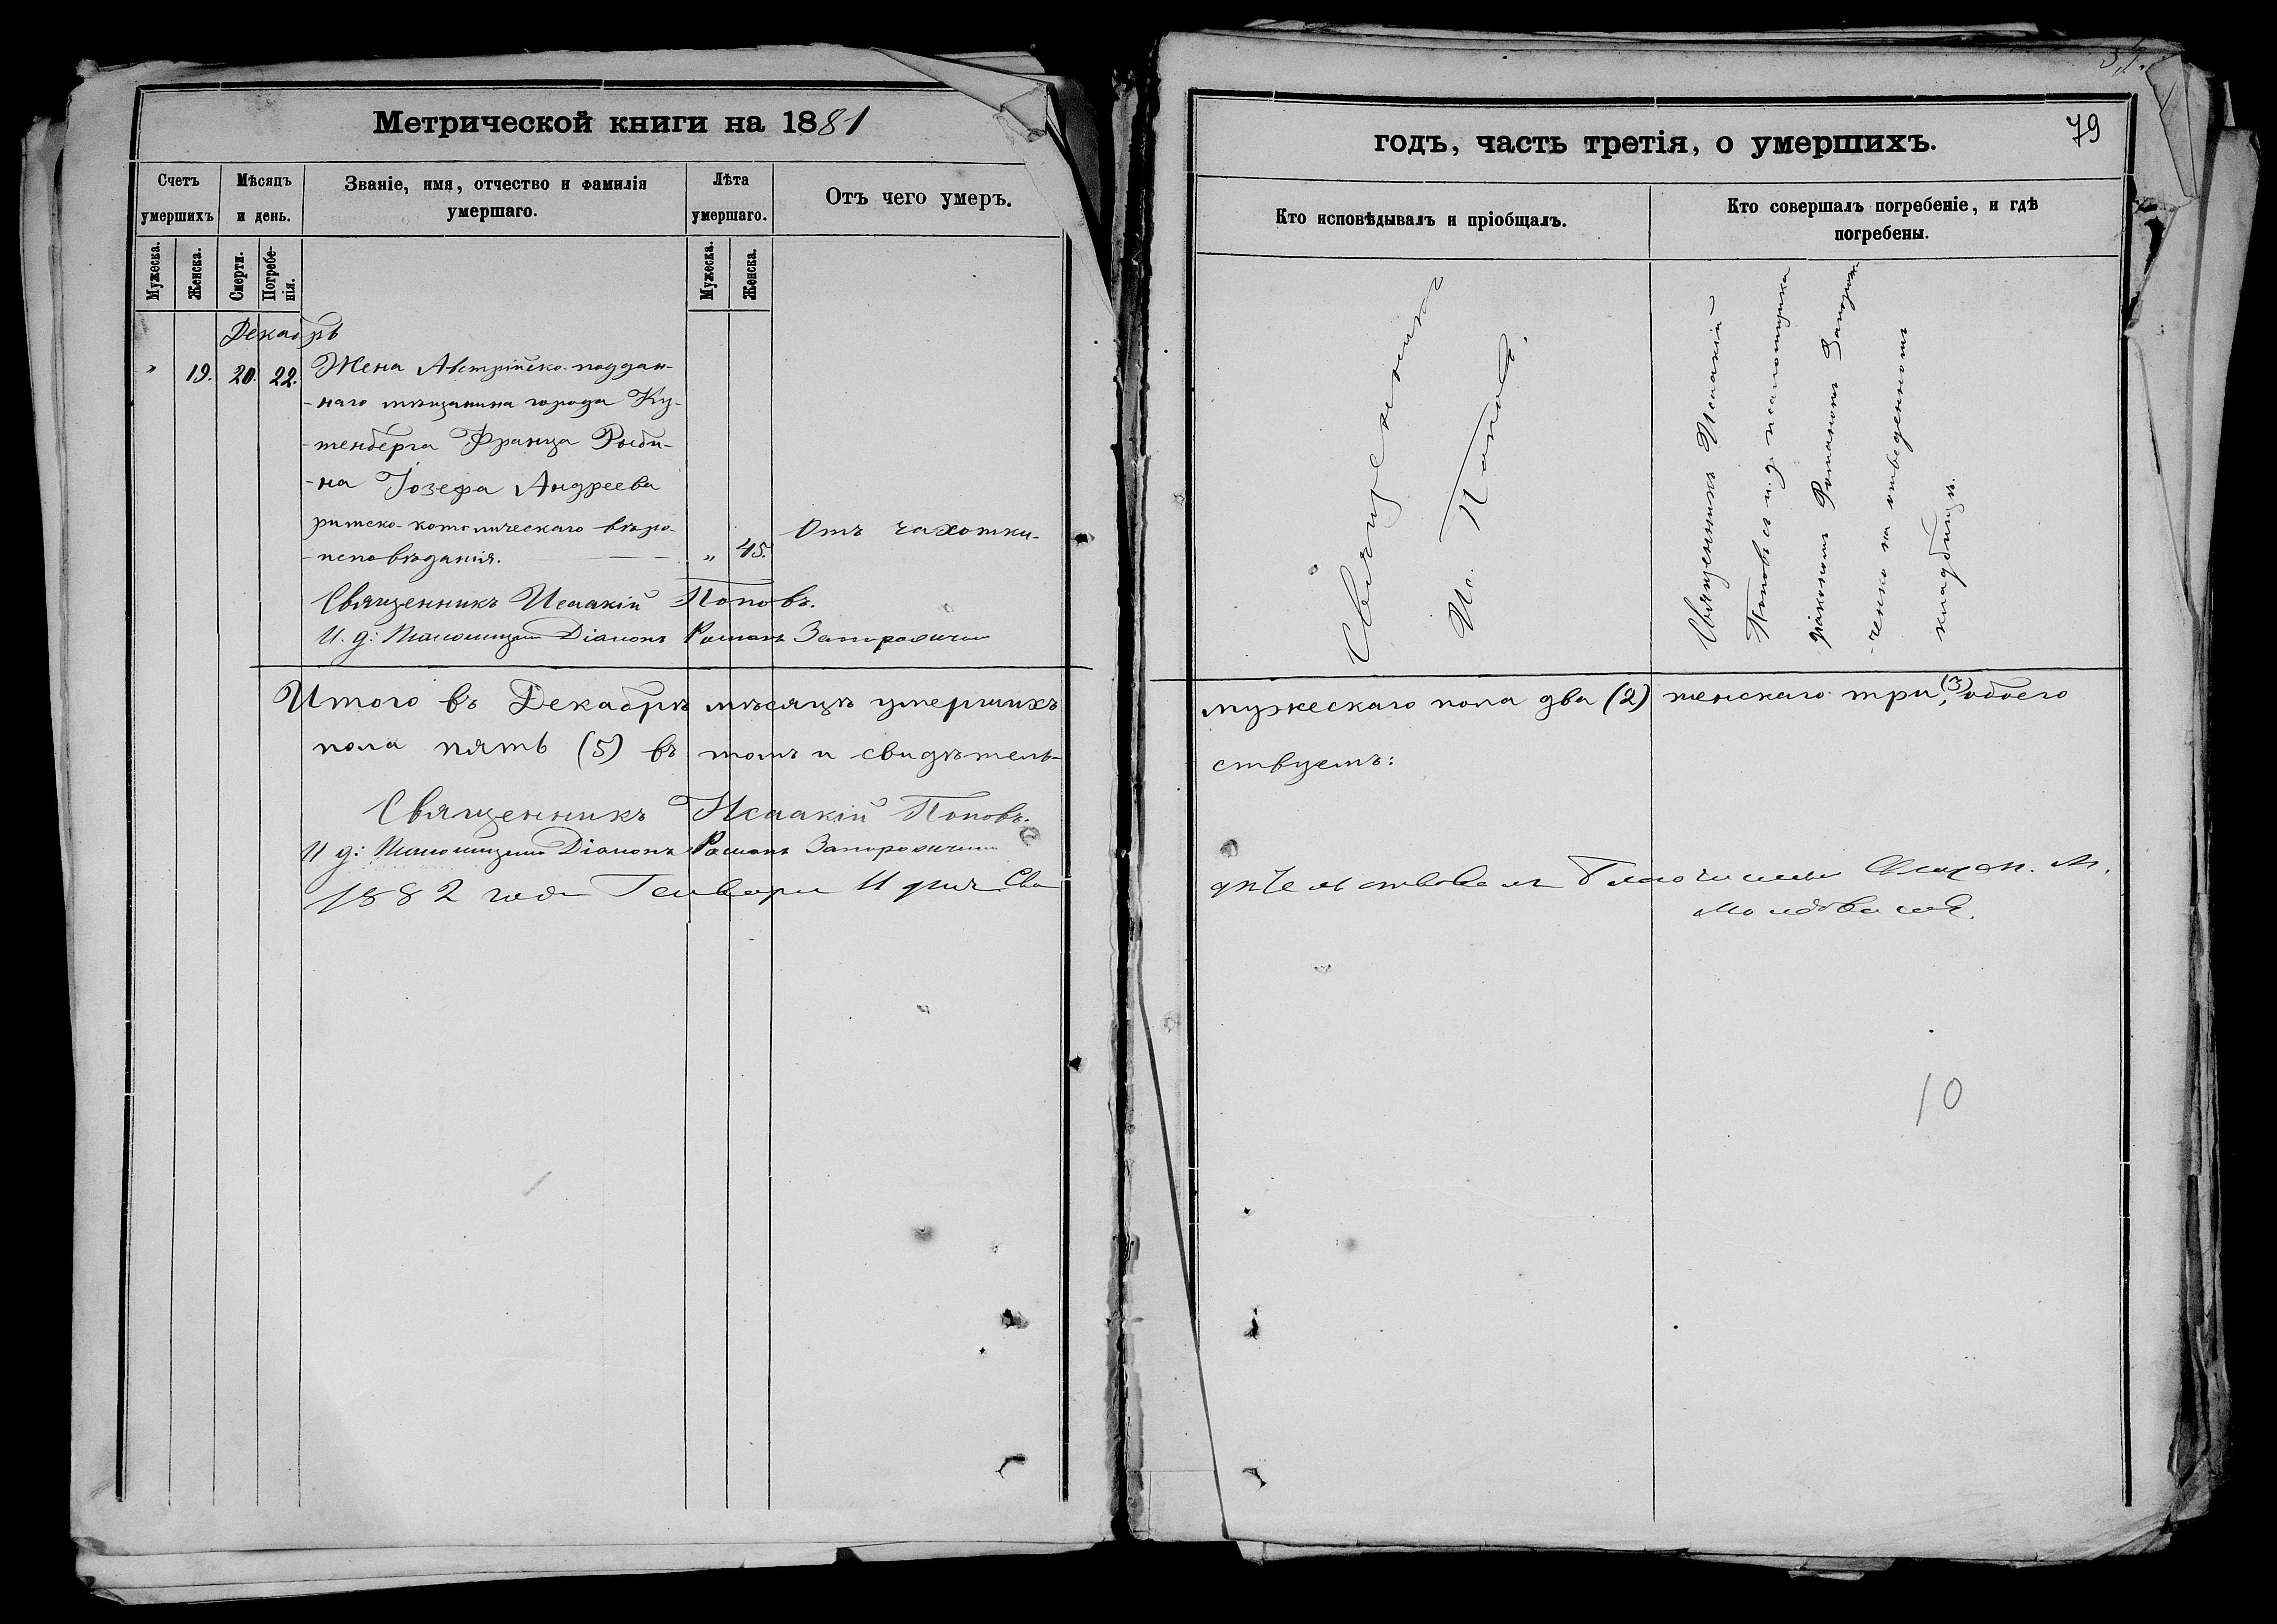 Метрической книги на 1881
Счетъ умершихъ
Мѣсяцъ и день.
Званіе, имя, отчество и фамилія умершаго.
Лѣта умершаго.
Отъ чего умеръ.
Мужеска.
Женска.
Смерти.
Погребенія.
Мужеска.
Женска.
Декабрь
" 19. 20. 22. Жена Австрійско-поддан-
-наго мѣщанина города Ку-
-тенберга Франца Рыби-
-на Іозефа Андреева
римско-католическаго вѣро-
-исповѣданія. " 45. Отъ чахотки.
Священникъ Исаакій Поповъ.
И. д: Псаломщика Діаконъ Романъ
Итого въ Декабрѣ мѣсяцѣ умершихъ
пола пять (5) въ томъ и свидѣтель-
Священникъ Исаакій Поповъ.
И д: Псаломщика Діаконъ Романъ
1882 года Генваря 11 дня Сви
годъ, часть третія, о умершихъ.
79
Кто исповѣдывалъ и пріобщалъ.
Кто совершалъ погребеніе, и гдѣ погребены.
Священникъ
Ис. Поповъ.
Священникъ Исаакій
Поповъ съ и. д. псаломщика
діакономъ Романомъ
на отведенномъ
кладбищѣ.
мужескаго пола два (2) женскаго три (3), обоего
ствуемъ:
дѣтельствовалъ Благочинный Священ. М.
10